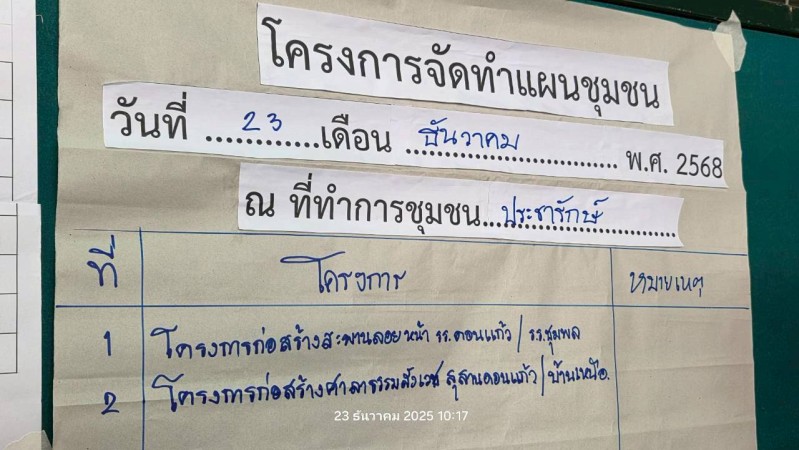 โครงการจัดทำแผนชุมชน
วันที่ ......23......เดือน ......ธันวาคม...... พ.ศ. 2568
ณ ที่ทำการชุมชน...ประชารักษ์......
ที่ โครงการ หมายเหตุ
1 โครงการก่อสร้างสะพานลอยหน้า รร.ดอนแก้ว / รร.ชุมพล
2 โครงการก่อสร้างศาลาธรรมสังเวช สุสานดอนแก้ว / บ้านเหนือ.
23 ธันวาคม 2025 10:17